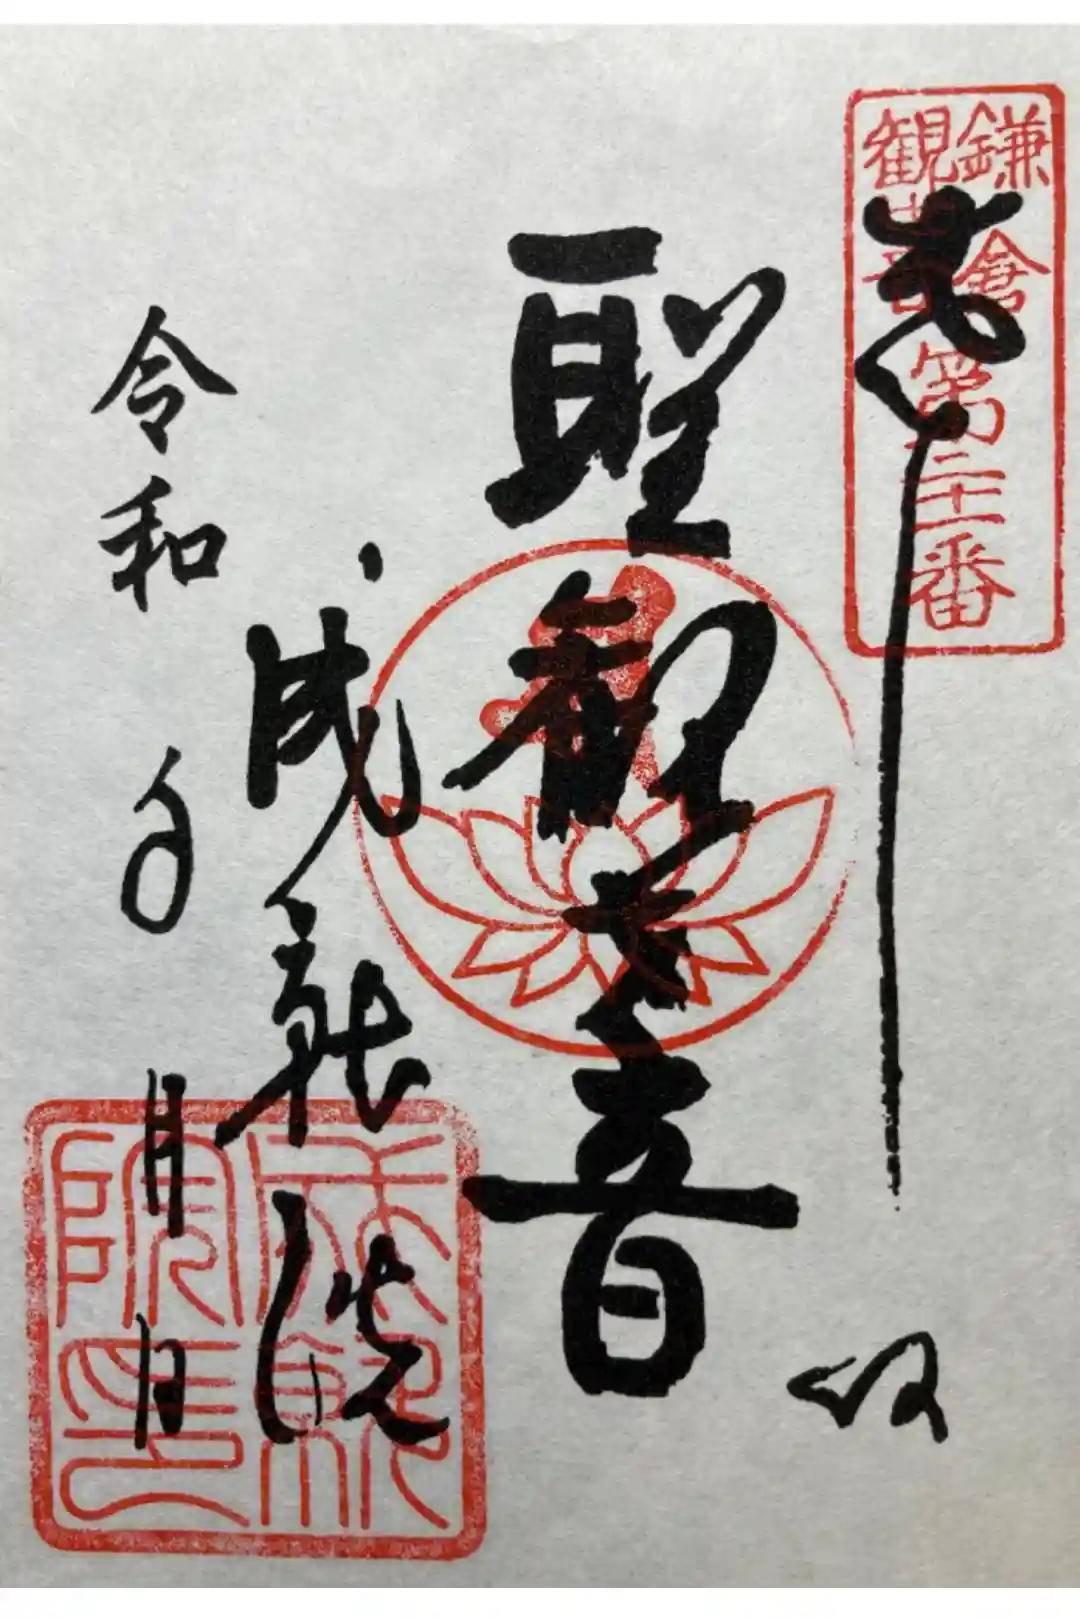 奉拝
鎌倉
観音
第二十一番
聖観世音
成就院
令和 年 月 日
成就院印